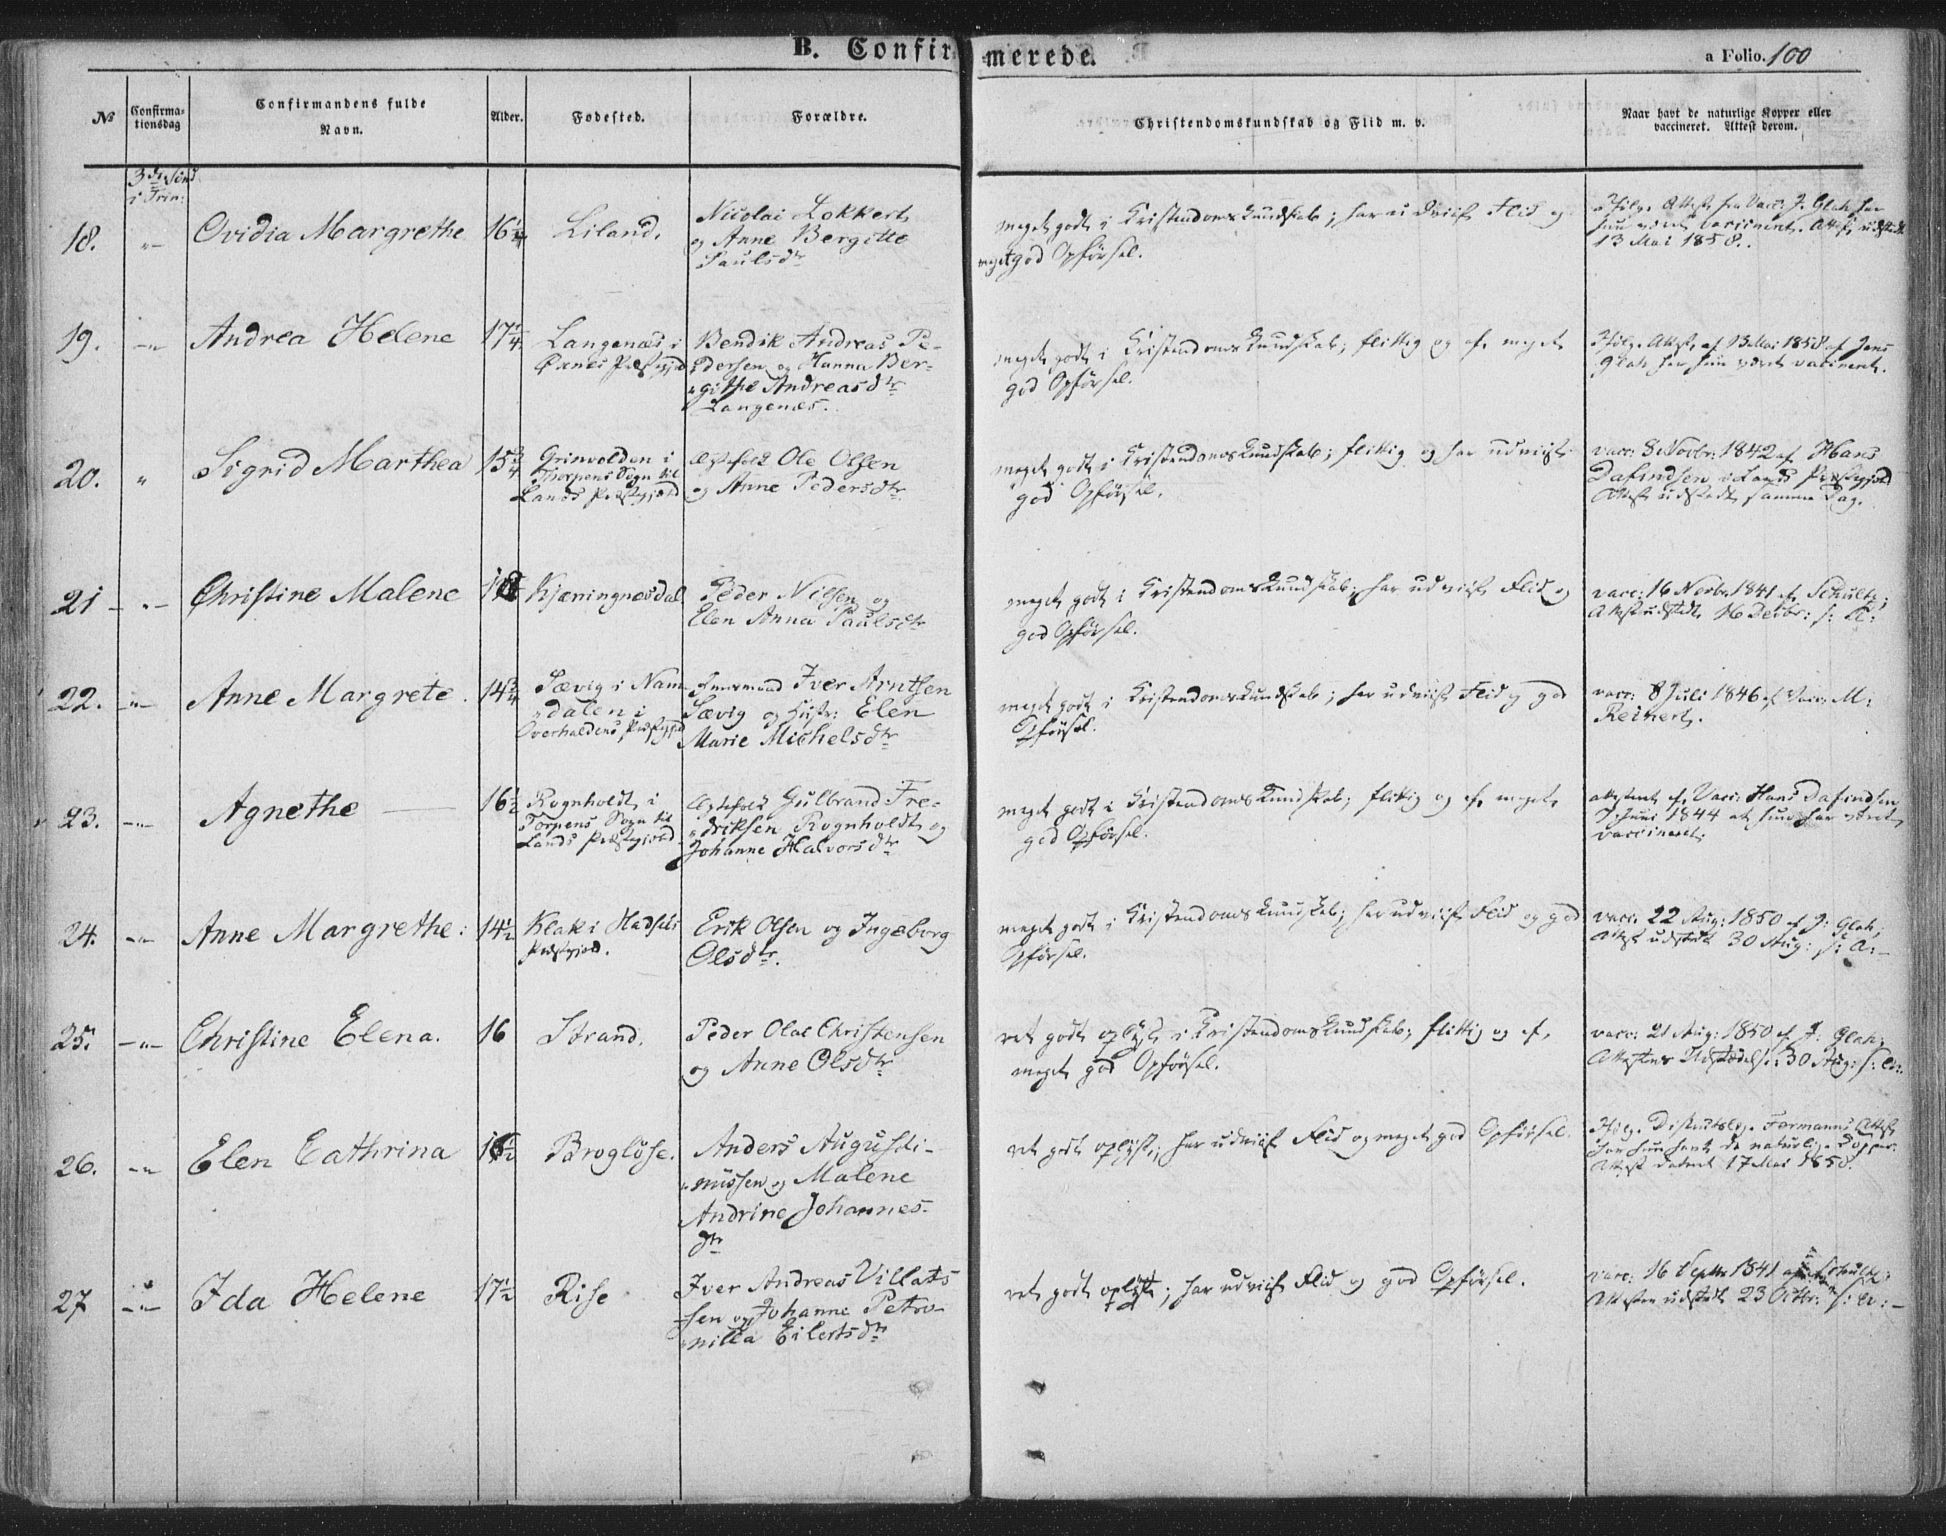 B. Confirmerede.
a Folio. 100
No
Confirmationsdag
Confirmandens fulde Navn.
Alder.
Fødested.
Forældre.
Christendomskundskab og Flid m. v.
Naar havt de naturlige Kopper eller vaccineret. Attest derom.
3die Sønd
i Trin:
18. -"- Ovidia Margrethe 16 1/4 Liland.
Nicolai Lokkert
og Anne Bergitte
Paulsdtr
meget godt i Kristendomskundskab; har udviist Flid og
meget god Opførsel.
Ifølge Attest fra Vacc: J. Glah har
hun været vaccineret. Attest udstedt
13 Mai 1858.
19. -"- Andrea Helene 17 1/4
Langenæs i
Øxnes Præstegjeld
Bendik Andreas Pe-
dersen og Hanna Ber-
githe Andreasdtr
Langenæs.
meget godt i Kristendomskundskab; flittig og af meget
god Opførsel.
Ifølge Attest af 13 Mai 1858 af Jens
Glah har hun været vaccineret.
20. " Sigrid Marthea 15 3/4
Grinvolden i
Thorpens Sogn til
Lands Præstegjeld
Ægtefolk Ole Olsen
og Anne Pedersdtr
meget godt i Kristendomskundskab; flittig og har udviist
god Opførsel.
vacc: 8 Novbr: 1842 af Hans
Dafindsen i Lands Præstegjeld
Attest udstedt samme Dag.
21 -"- Christine Malene
Kjæringnesdal
Peder Nilsen og
Elen Anna Paulsdtr
meget godt i Kristendomskundskab; har udviist Flid og
god Opførsel.
vacc: 16 Novbr 1841 af Schultz;
Attest udstedt 16 Decbr: s: A:
22. -"- Anne Margrete. 14 3/4
Sævig i Nam
dalen i
Overhaldens Præstegjeld
Huusmand Iver Arntsen
Sævig og Hustr: Elen
Marie Michelsdtr
meget godt i Kristendomskundskab; har udviist Flid og god
Opførsel.
vacc: 8 Juli 1846 af Vacc: M:
Reinert.
23. -"- Agnethe 16 1/2
Rognholdt i
Torpens Sogn til
Lands Præstegjeld
Ægtefolk Gulbrand Fre-
driksen Rognholdt og
Johanne Halvorsdtr
meget godt i Kristendomskundskab; flittig og af meget
god Opførsel.
attesteret af Vacc: Hans Dafindsen
Juni 1844 at hun har været
vaccineret.
24. -"- Anne Margrethe: 14 1/2
Klak i Hadsels
Præstegjeld.
Erik Olsen og Ingeborg
Olsdtr.
meget godt i Kristendomskundskab; har udviist Flid og god
Opførsel.
vacc: 22 Aug: 1850 af J: Glah;
Attest udstedt 30 Aug: s: A: -
25. -"- Christine Elena. 16 Strand.
Peder Olai Christensen
og Anne Olsdtr
ret godt oplyst i Kristendomskundskab; flittig og af
meget god Opførsel.
vacc: 21 Aug: 1850 af J: Glah;
Attestens Udstedelse: 30 Aug: s: A:
26. -"- Elen Cathrina Brogløse.
Anders Augusti-
nussen og Malene
Andrine Johannes-
dtr
ret godt oplyst; har udviist Flid og meget god Opførsel.
Ifølge Distriktslæge Formanns Attest
har hun havt de naturlige Kopper.
Attest dateret 17 Mai 1858.
27 -"- Ida Helene 17 1/2 Rise
Iver Andreas Villads
sen og Johanne Petro
nilla Eilertsdtr
ret godt oplyst; har udviist Flid og god Opførsel.
vacc: 16 Septbr 1841 af Schultz;
Attesten udstedt 23 Octbr: s: A: -